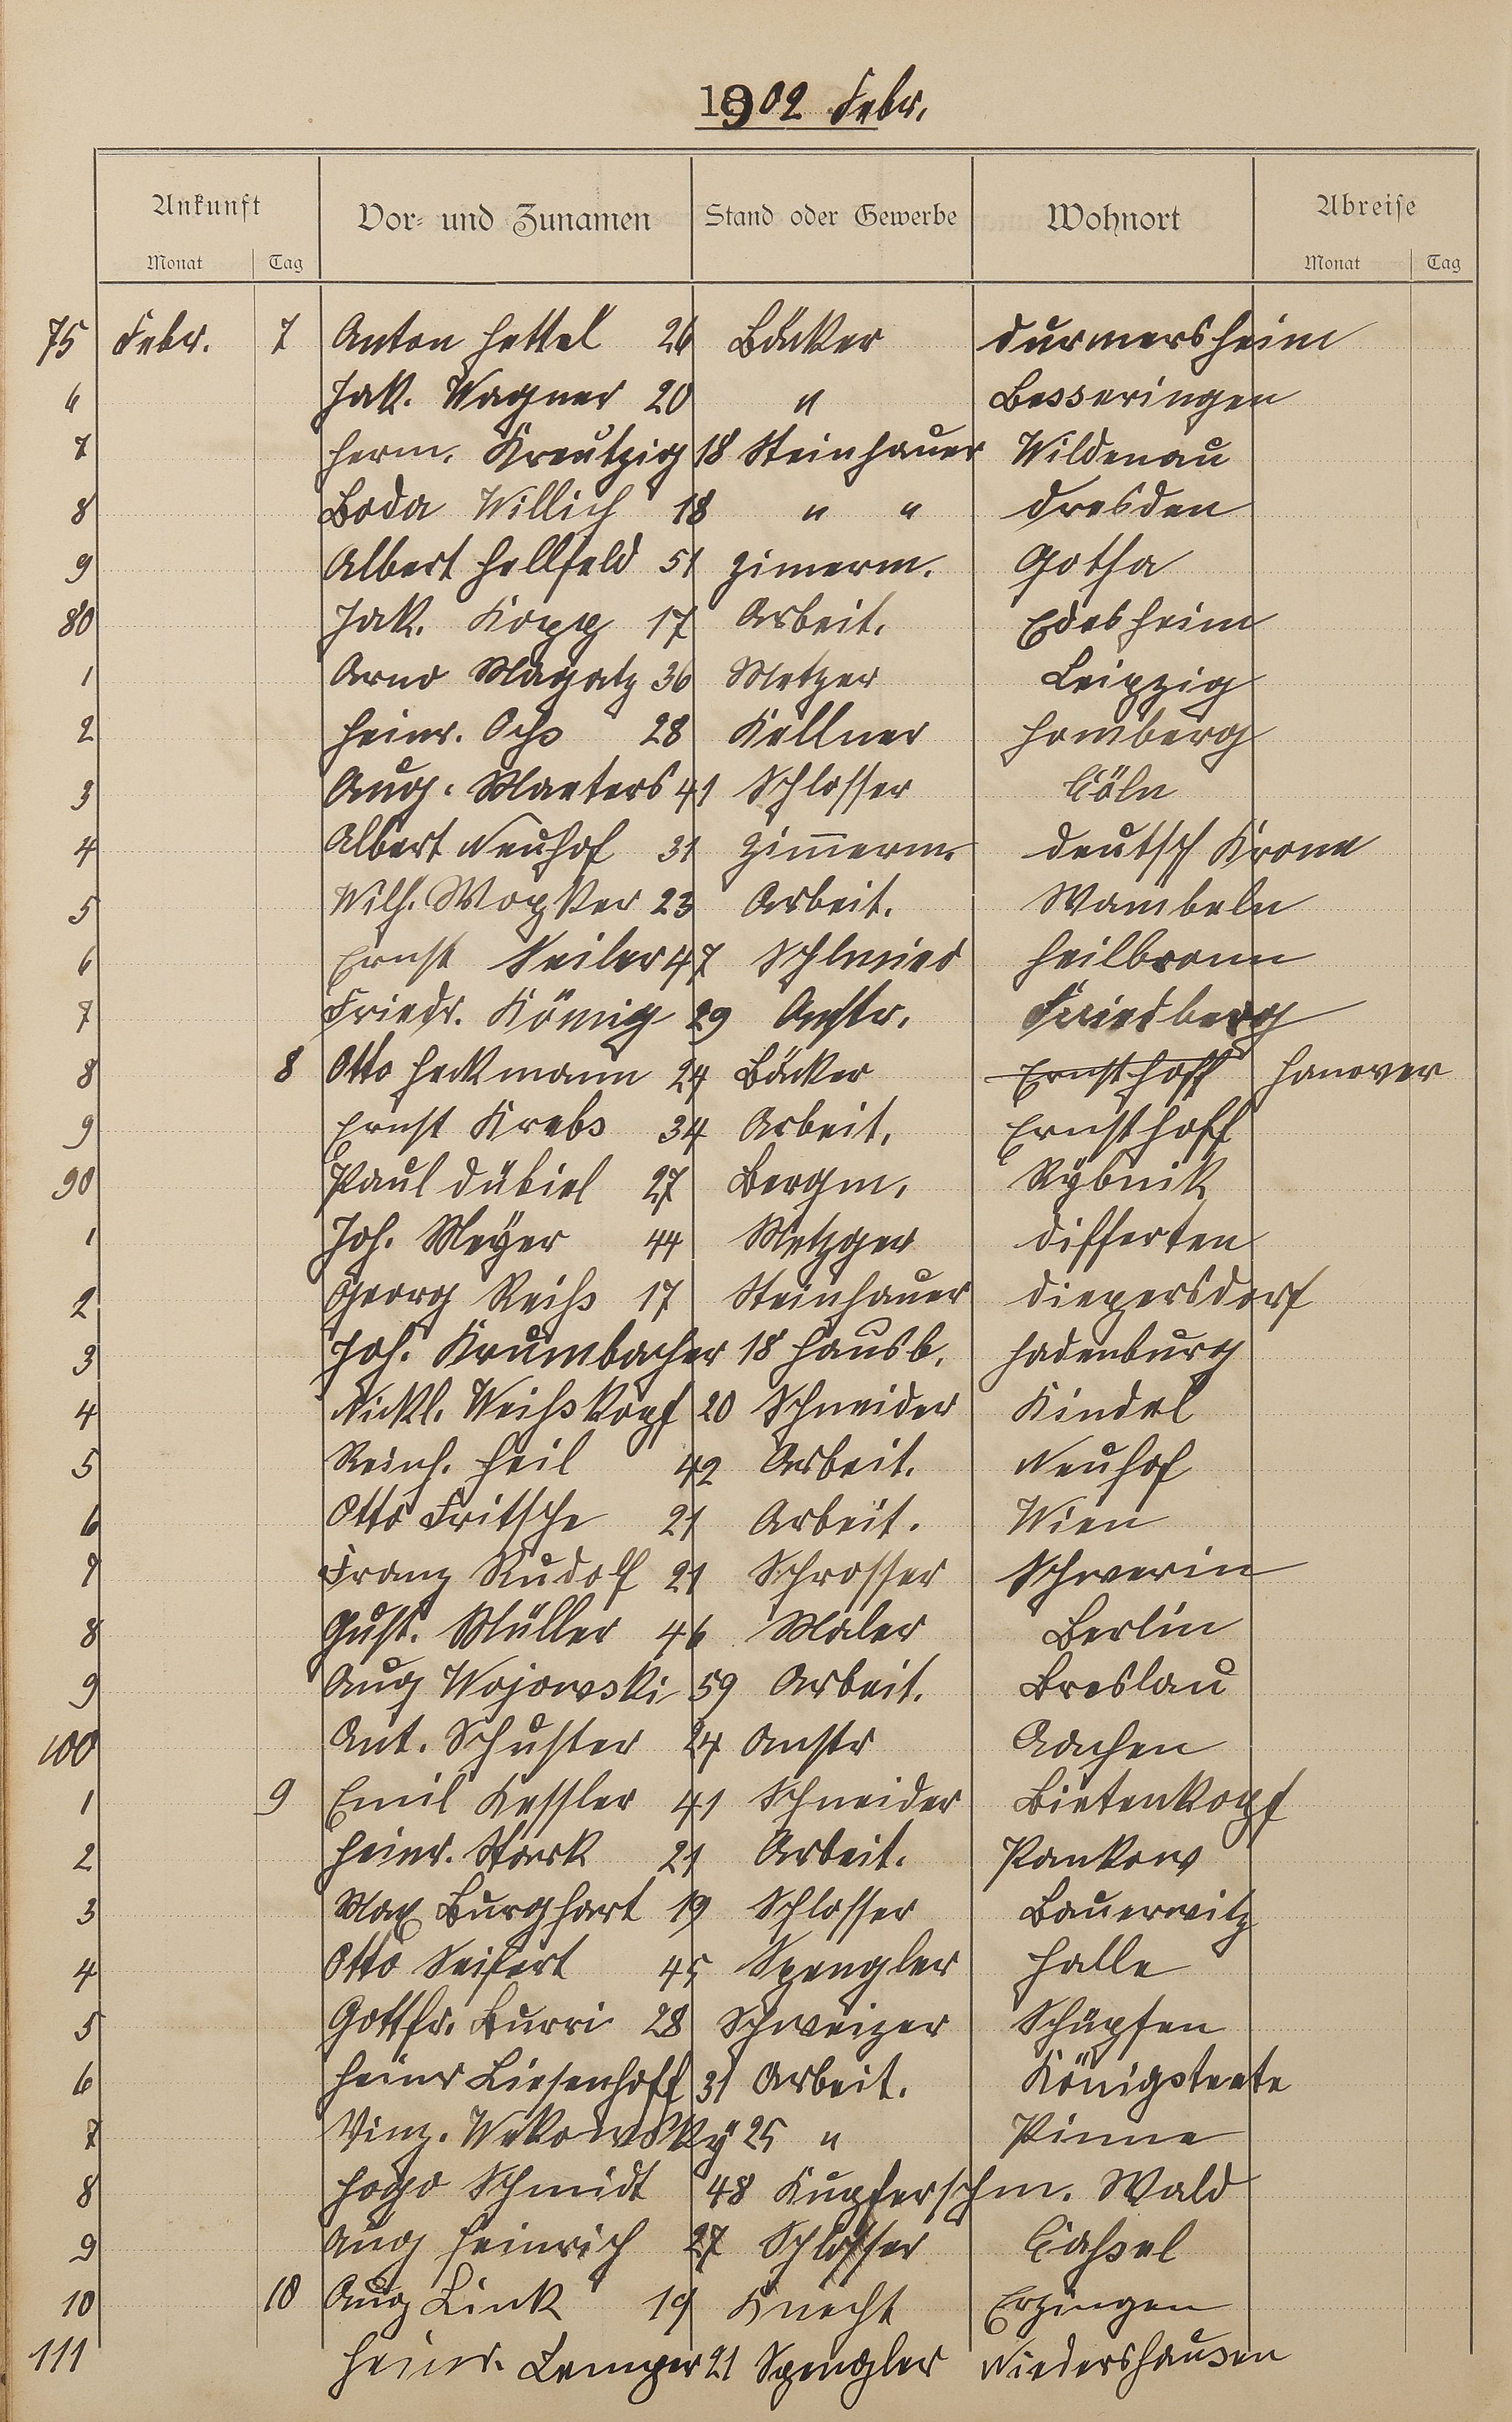 1902 Febr.
Ankunft Vor- und Zunamen Stand oder Gewerbe Wohnort Abreise
Monat Tag Monat Tag
75 Febr. 7 Anton Hettel 26 Bäcker Durmersheim
6 Jak. Wagner 20 " Besseringen
7 Herm. Kreutzig 18 Steinhauer Wildenau
8 Boda Willich 18 " " Dresden
9 Albert Hellfeld 51 Zimerm. Gotha
80 Jak. Kopp 17 Arbeit. Edesheim
1 Arno Magatz 36 Metzer Leipzig
2 Heinr. Ochs 28 Kellner Homberg
3 Aug. Maeters 41 Schlosser Cöln
4 Albert Neuhof 31 Zim̄erm. Deutsch Krone
5 Wilh. Wopker 23 Arbeit. Wambeln
6 Ernst Seiler 47 Schmied Heilbronn
7 Friedr. König 29 Anstr. Friedberg
8 8 Otto Heckmann 24 Bäcker Ernsthoff Hanover
9 Ernst Krebs 34 Arbeit. Ernsthoff
90 Paul Dubiel 27 Bergm. Rybnik
1 Joh. Meÿer 44 Metzger Differten
2 Georg Reihs 17 Steinhauer Diepersdorf
3 Joh. Krumbacher 18 Hausb. Hadenburg
4 Nickl. Weihskopf 20 Schneider Kindel
5 Reinh. Heil 42 Arbeit. Neuhof
6 Otto Fritsche 21 Arbeit. Wien
7 Franz Rudolf 21 Schrosser Schwerin
8 Gust. Müller 46 Maler Berlin
9 Aug Wojowski 59 Arbeit. Breslau
100 Ant. Schuster 24 Anstr Aachen
1 9 Emil Kessler 41 Schneider Bietenkopf
2 Heinr. Stork 21 Arbeit. Pankow
3 Max Burghart 19 Schlosser Bauerwitz
4 Otto Seifert 45 Spengler Halle
5 Gottfr. Burri 28 Schweizer Schüpfen
6 Heinr Liesenhoff 31 Arbeit. Königstente
7 Vinz. Wekowskÿ 25 " Pinne
8 Hogo Schmidt 48 Kupferschm. Wald
9 Aug Heinrich 27 Schlosser Cahsel
10 10 Aug Link 19 Knecht Erzingen
111 Heinr. Lemper 21 Spengler Niedershausen